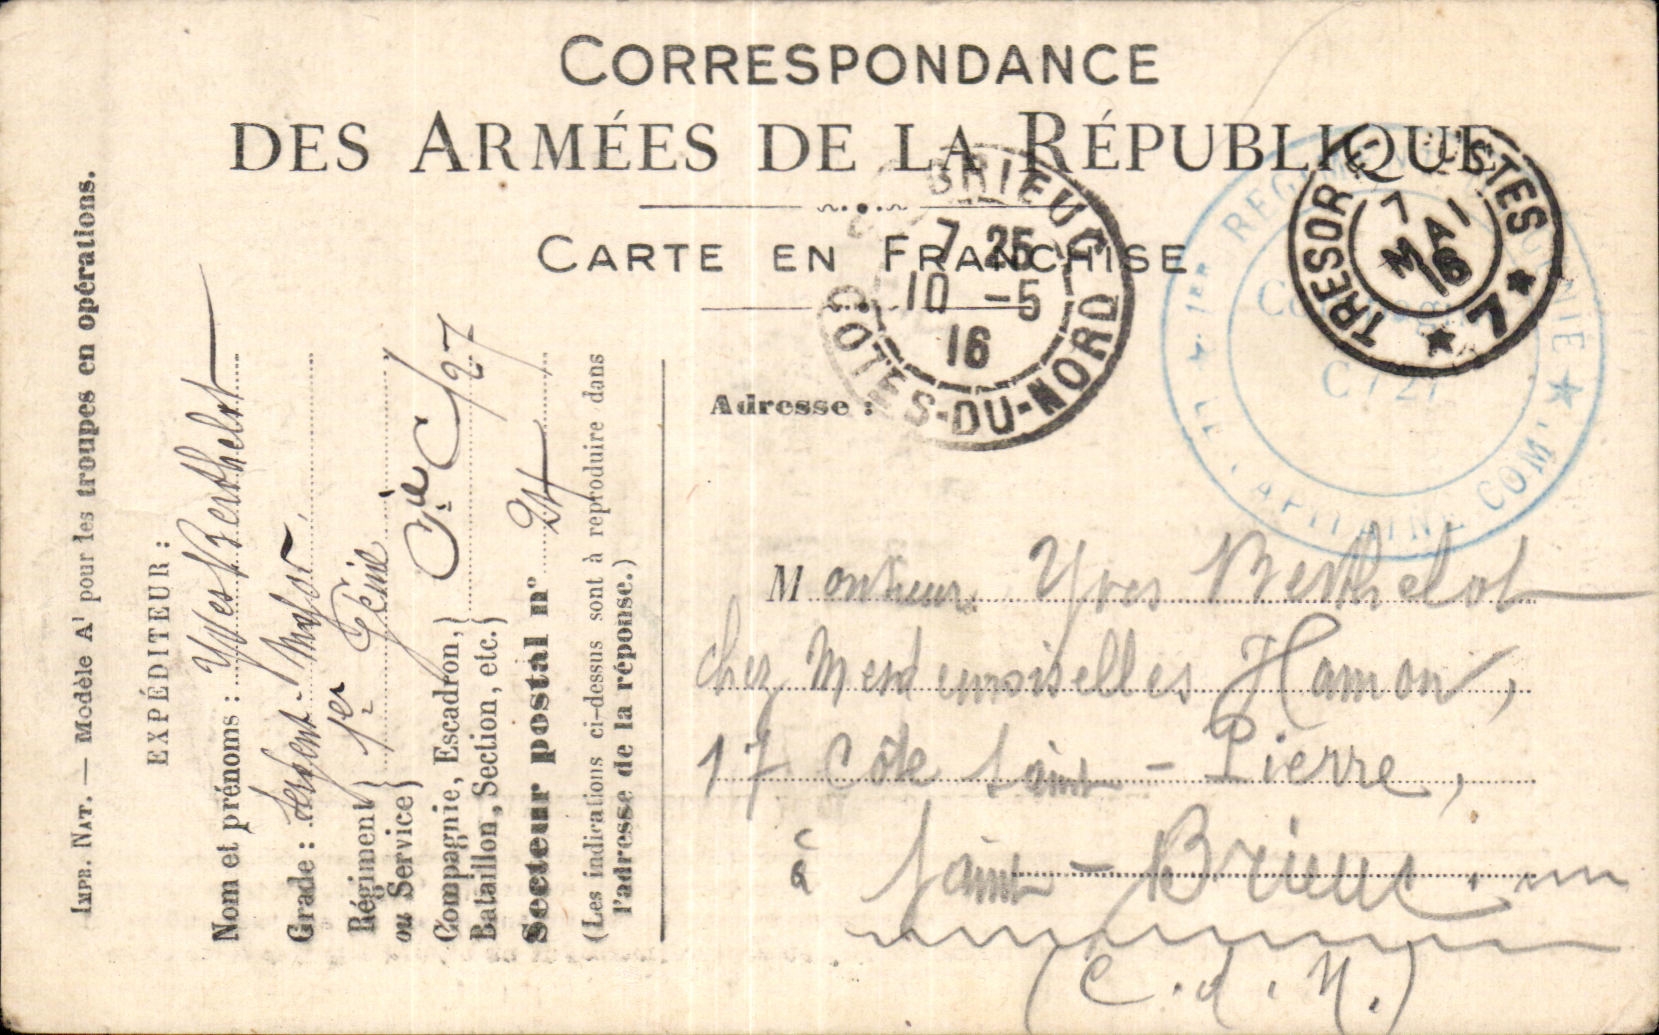 CORRESPONDANCE
DES ARMÉES DE LA RÉPUBLIQUE
CARTE EN FRANCHISE
BRIEUC
7 25
10 -5
16
COTES-DU-NORD
TRESOR ET POSTES
7
MAI
16
★ 7 ★
★ 1ER REGIMENT DU GENIE ★
CAPITAINE COM
IMPR. NAT. — Modèle A¹ pour les troupes en opérations.
EXPÉDITEUR :
Nom et prénoms : Yves Berthelot
Grade : Sergent-Major
Régiment ou Service } 1er Génie
Compagnie, Escadron, Bataillon, Section, etc. } Cie C/27
Secteur postal n° 24
(Les indications ci-dessus sont à reproduire dans
l'adresse de la réponse.)
Adresse :
Monsieur Yves Berthelot
chez Mesdemoiselles Hamon,
17 Côte Saint-Pierre,
à Saint-Brieuc.
(C.d.N.)